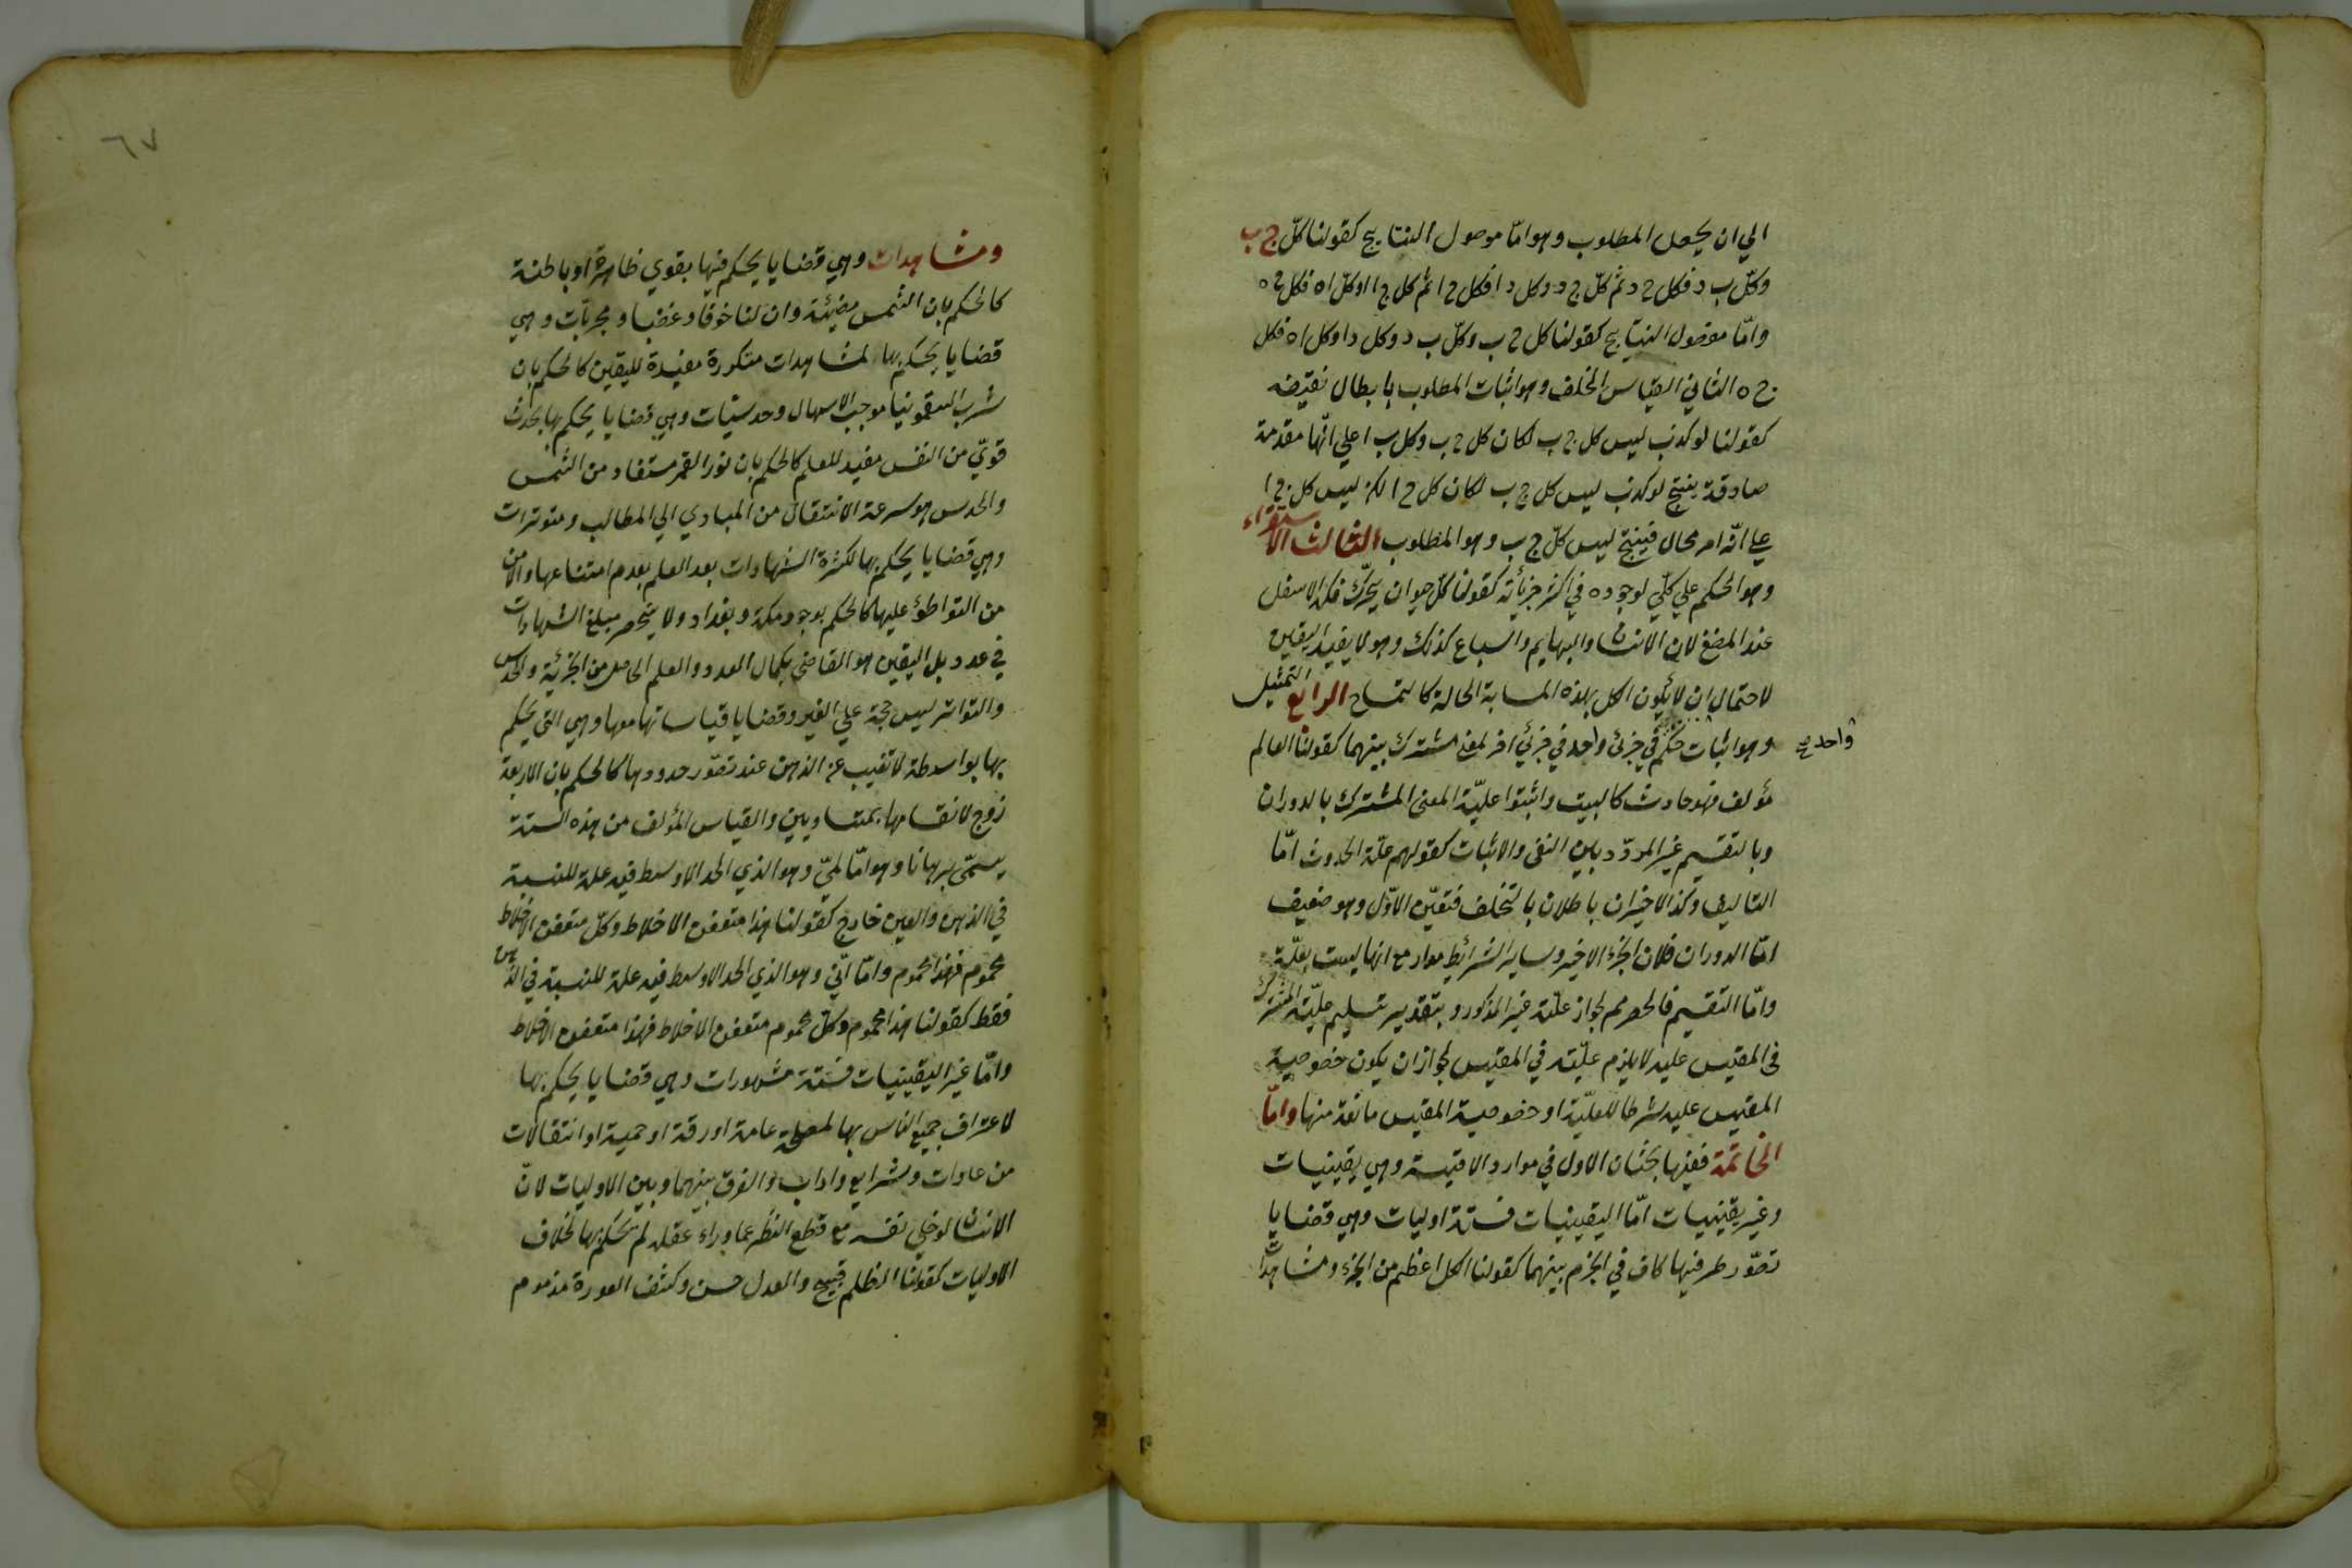 الي ان يحصل المطلوب وهو امّا موصول النتايج كقولنا كلّ ج ب
وكلّ ب د فكل ج د ثم كلّ ج د وكل د ا فكل ج ا ثم كل ج ا وكلّ ا ه فكل ج ه
وامّا مفصول النتايج كقولنا كل ج ب وكلّ ب د وكل د ا وكل ا ه فكل
ج ه الثاني القياس الخلف وهو اثبات المطلوب بابطال نقيضه
كقولنا لو كذب ليس كل ج ب لكان كل ج ب وكل ب ا علي انّها مقدمة
صادقة ينتج لو كذب ليس كل ج ب لكان كل ج ا لكن ليس كل ج ا
علي انّه امر محال فينتج ليس كلّ ج ب وهو المطلوب الثالث الاستقراء
وهو الحكم علي كلّي لوجوده في اكثر جزئياته كقولنا كلّ حيوان يحرّك فكه الاسفل
عند المضغ لان الانسان والبهايم والسباع كذلك وهو لا يفيد اليقين
لاحتمال ان لا يكون الكل بهذه الحالة كالتمساح الرابع التمثيل
وهو اثبات حكم في جزئ واحد في جزئي اخر لمعني مشترك بينهما كقولنا العالم
واحد صح
مؤلف فهو حادث كالبيت واثبتوا عليّة المعني المشترك بالدوران
وبالتقسيم غير المردّد بين النفي والاثبات كقولهم علّة الحدوث امّا
التاليف وكذا الاخيران باطلان بالتخلف فتعيّن الاوّل وهو ضعيف
امّا الدوران فلان الجزء الاخير وساير الشرائط مدار مع انها ليست بعلّة
وامّا التقسيم فالحصر مم لجواز علّة غير المذكور وبتقدير تسليم عليّة المشترك
في المقيس عليه لا يلزم عليّته في المقيس لجواز ان يكون خصوصية
المقيس عليه شرطا للعليّة او خصوصية المقيس مانعة منها وامّا
الخاتمة ففيها بحثان الاول في موارد الاقيسة وهي يقينيات
وغير يقينيات امّا اليقينيات فستة اوليات وهي قضايا
تصّور طرفيها كاف في الجزم بينهما كقولنا الكل اعظم من الجزء ومشاهدات
٦٧
ومشاهدات وهي قضايا يحكم فيها بقوي ظاهرة او باطنة
كالحكم بان الشمس مضيئة وان لنا خوفا وغضبا ومجربّات وهي
قضايا يحكم بها لمشاهدات متكررة مفيدة لليقين كالحكم بان
شرب السقمونيا موجب الاسهال وحدسيّات وهي قضايا يحكم بها بحدث
قويّ من النفس مفيد للعلم كالحكم بان نور القمر مستفاد من الشمس
والحدس هو سرعة الانتقال من المبادي الي المطالب ومتوترات
وهي قضايا يحكم بها لكثرة الشهادات بعد العلم بعدم امتناعها والامن
من التواطؤ عليها كالحكم بوجود مكة وبغداد ولا ينحصر مبلغ الشهادات
في عدد بل اليقين هو القاضي بكمال العدد والعلم الحاصل من التجربة والحدس
والتواتر ليس حجة علي الغير وقضايا قياساتها معها وهي التي يحكم
بها بواسطة لا تغيب عن الذهن عند تصّور حدودها كالحكم بان الاربعة
زوج لانقسامها بمتساويين والقياس المؤلف من هذه الستة
يسمّي برهانا وهو امّا لميّ وهو الذي الحد الاوسط فيه علة للنسبة
في الذهن والعين خارج كقولنا هذا متعفن الاخلاط وكلّ متعفن الاخلاط
محموم فهذا محموم وامّا انّي وهو الذي الحد الاوسط فيه علة للنسبة في الذهن
فقط كقولنا هذا محموم وكلّ محموم متعفن الاخلاط فهذا متعفن الاخلاط
وامّا غير اليقينيات فستة مشهورات وهي قضايا يحكم بها
لاعتراف جميع الناس بها لمصلحة عامة او رقة او حمية او انتقالات
من عادات وشرايع واداب والفرق بينهما وبين الاوليات لانّ
الانسان لو خلي نفسه مع قطع النظر عما وراء عقله لم يحكم بها بخلاف
الاوليات كقولنا الظلم قبيح والعدل حسن وكشف العورة مذموم